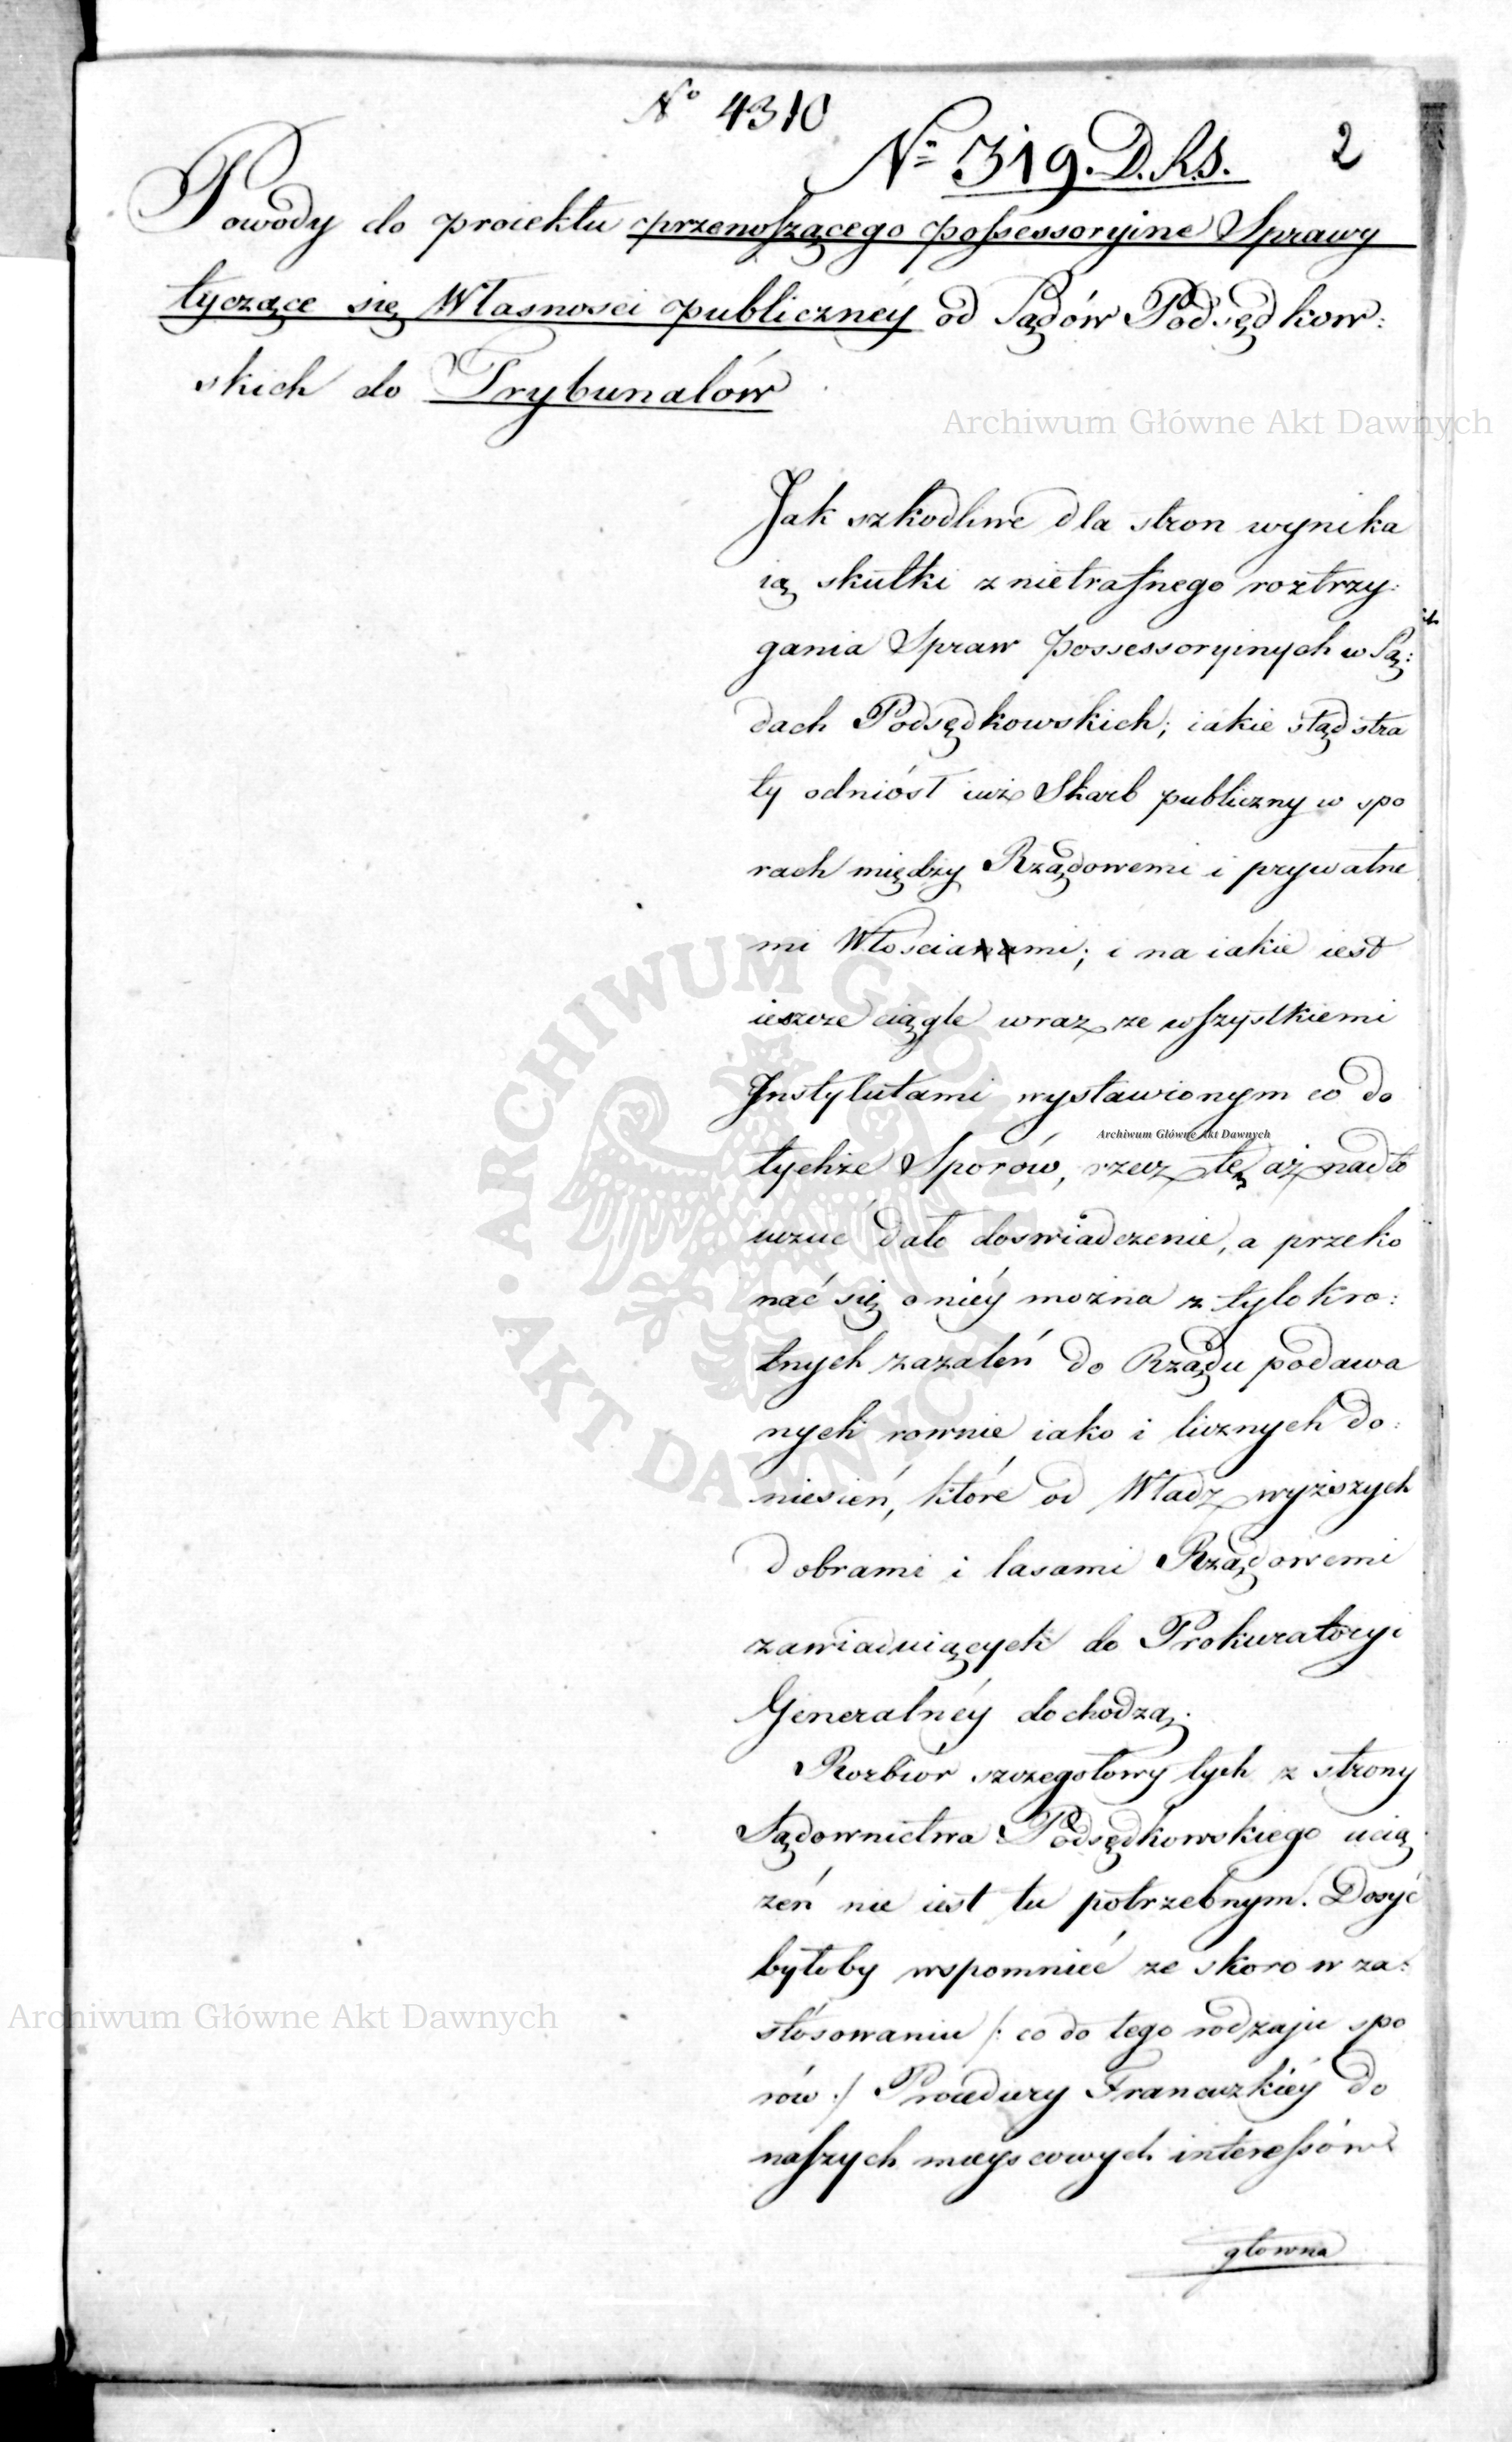 No 4310
No 319. D.R.S.
2
Powody do proiektu przenoszącego possessoryine Sprawy
tyczące się Własnosci publicznéy od Sądów Podsędkow:
skich do Trybunałów
Archiwum Główne Akt Dawnych
Jak szkodliwe dla stron wynika
ią skutki z nietrafnego roztrzy:
gania Spraw possessoryinych w Są:
dach Podsędkowskich; iakie stąd stra
ty odniósł iuż Skarb publiczny w spo
rach między Rządowemi i prywatne
mi Włościanami; i na iakie iest
ieszcze ciągle wraz ze wszystkiemi
Instytutami wystawionym co do
Archiwum Główne Akt Dawnych
tychże Sporów, rzecz tę aż nadto
uczuć dało doswiadczenie, a przeko
nać się o niéy można z tylokro:
tnych zażaleń do Rządu podawa
nych rownie iako i licznych do:
niesień, które od Władz wyższych
dobrami i lasami Rządowemi
zawiaduiących do Prokuratoryi
Generalnéy dochodzą.
Rozbiór szczegołowy tych z strony
Sądownictwa Podsędkowskiego ucią
żeń nie iest tu potrzebnym. Dosyć
byłoby wspomnieć że skoro w za:
stósowaniu /: co do tego rodzaju spo
rów :/ Procedury Francuzkiéy do
naszych mieyscowych interessów
Archiwum Główne Akt Dawnych
głowna
ARCHIWUM GŁÓWNE • AKT DAWNYCH